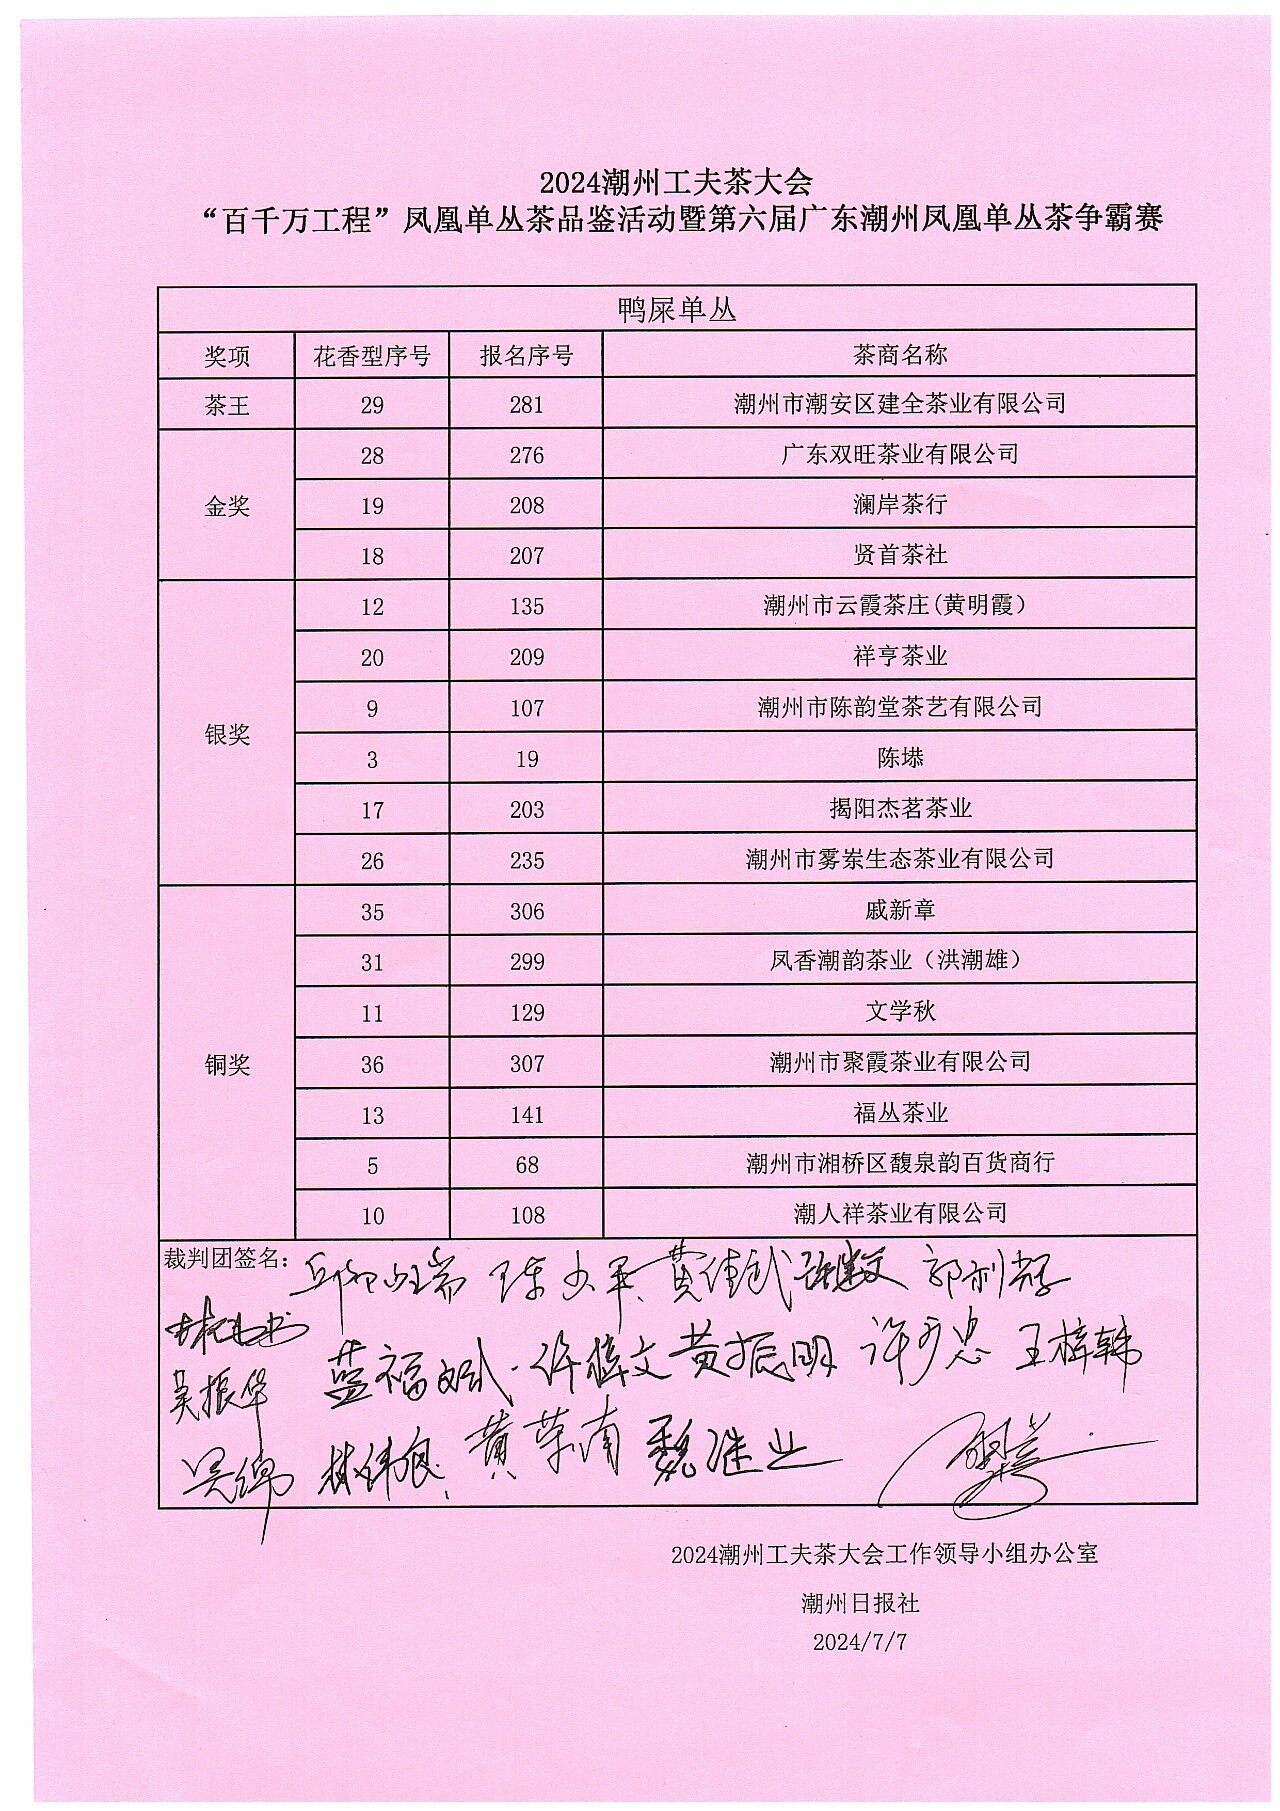 2024潮州工夫茶大会
“百千万工程”凤凰单丛茶品鉴活动暨第六届广东潮州凤凰单丛茶争霸赛
鸭屎单丛
奖项 花香型序号 报名序号 茶商名称
茶王 29 281 潮州市潮安区建全茶业有限公司
金奖 28 276 广东双旺茶业有限公司
19 208 澜岸茶行
18 207 贤首茶社
银奖 12 135 潮州市云霞茶庄(黄明霞）
20 209 祥亨茶业
9 107 潮州市陈韵堂茶艺有限公司
3 19 陈塨
17 203 揭阳杰茗茶业
26 235 潮州市雾岽生态茶业有限公司
铜奖 35 306 戚新章
31 299 凤香潮韵茶业（洪潮雄）
11 129 文学秋
36 307 潮州市聚霞茶业有限公司
13 141 福丛茶业
5 68 潮州市湘桥区馥泉韵百货商行
10 108 潮人祥茶业有限公司
裁判团签名： 黄佳武 郭利辉
吴振华 蓝福斌 许伟文 黄振明 王梓韩
吴锦 林伟良 黄荣南 魏洪业
2024潮州工夫茶大会工作领导小组办公室
潮州日报社
2024/7/7